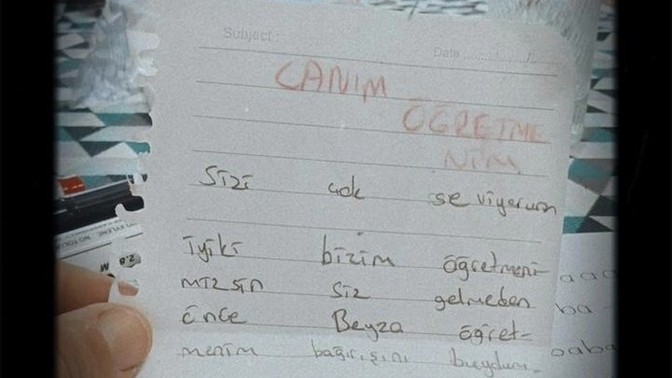 Subject:
Date
CANIM
ÖĞRETME
NİM
Sizi çok seviyorum
iyiki bizim öğretmeni-
mizsin siz gelmeden
önce Beyza öğret-
menim bağırışını
aaa
ba
aaba